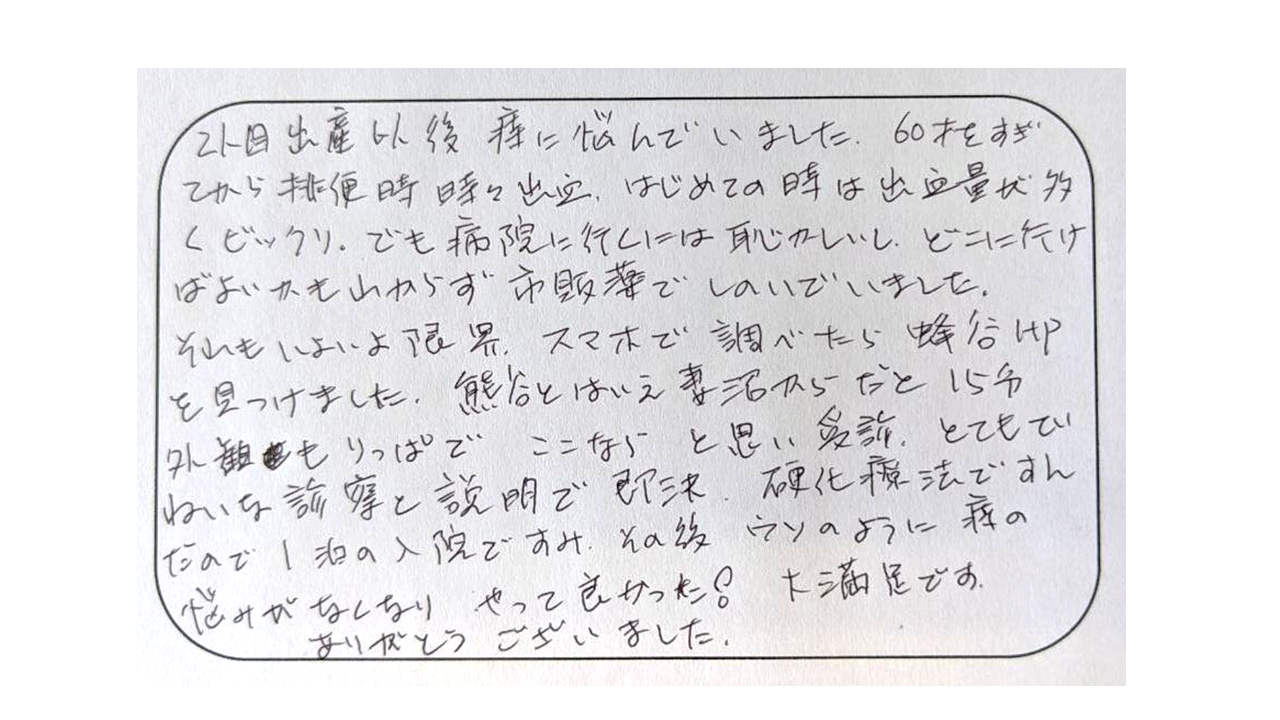 2人目出産以後 痔に悩んでいました。60才をすぎ
てから排便時時々出血。はじめての時は出血量が多
くビックリ。でも病院に行くには恥かしいし、どこに行け
ばよいかも山からず市販薬でしのいでいました。
それもいよいよ限界。スマホで調べたら蜂谷HP
を見つけました。熊谷とはいえ妻沼からだと15分
外観もりっぱで ここなら と思い受診。とてもてい
ねいな診察と説明で即決。硬化療法ですん
だので1泊の入院ですみ、その後ウソのように痔の
悩みがなくなり やって良かった! 大満足です。
ありがとうございました。